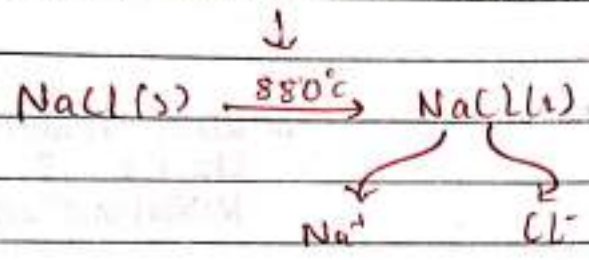 NaCl(s) 880°c NaCl(l)
Na⁺ Cl⁻